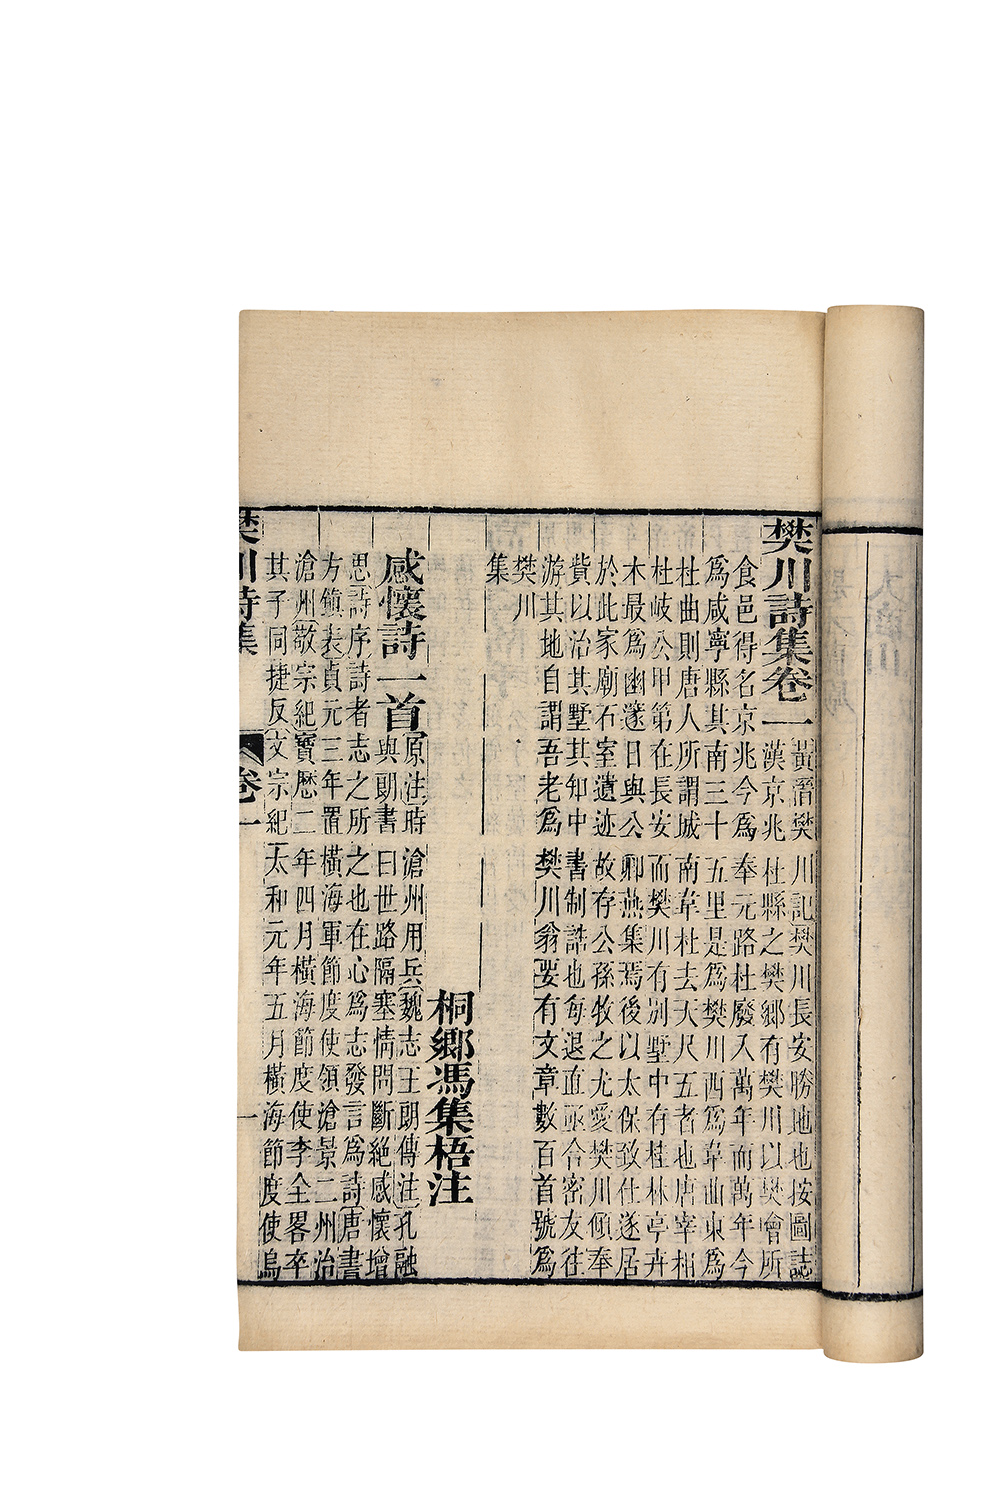 樊川詩集卷一
黃溍樊川記樊川長安勝地也按圖志
漢京兆杜縣之樊鄉有樊川以樊噲所
食邑得名京兆今爲奉元路杜廢入萬年而萬年今
爲咸寧縣其南三十五里是爲樊川西爲韋曲東爲
杜曲則唐人所謂城南韋杜去天尺五者也唐宰相
杜岐公甲第在長安而樊川有別墅中有桂林亭卉
木最爲幽邃日與公卿燕集焉後以太保致仕遂居
於此家廟石室遺迹故存公孫牧之尤愛樊川傾奉
貲以治其墅其知中書制誥也每退直亟合密友往
游其地自謂吾老爲樊川翁要有文章數百首號爲
樊川
集
桐鄉馮集梧注
感懷詩一首
原注時滄州用兵魏志王朗傳注孔融
與朗書曰世路隔塞情問斷絕感懷增
思詩序詩者志之所之也在心爲志發言爲詩唐書
方鎮表貞元三年置橫海軍節度使領滄景二州治
滄州敬宗紀寶曆二年四月橫海節度使李全畧卒
其子同捷反文宗紀太和元年五月橫海節度使烏
樊川詩集
卷一
一